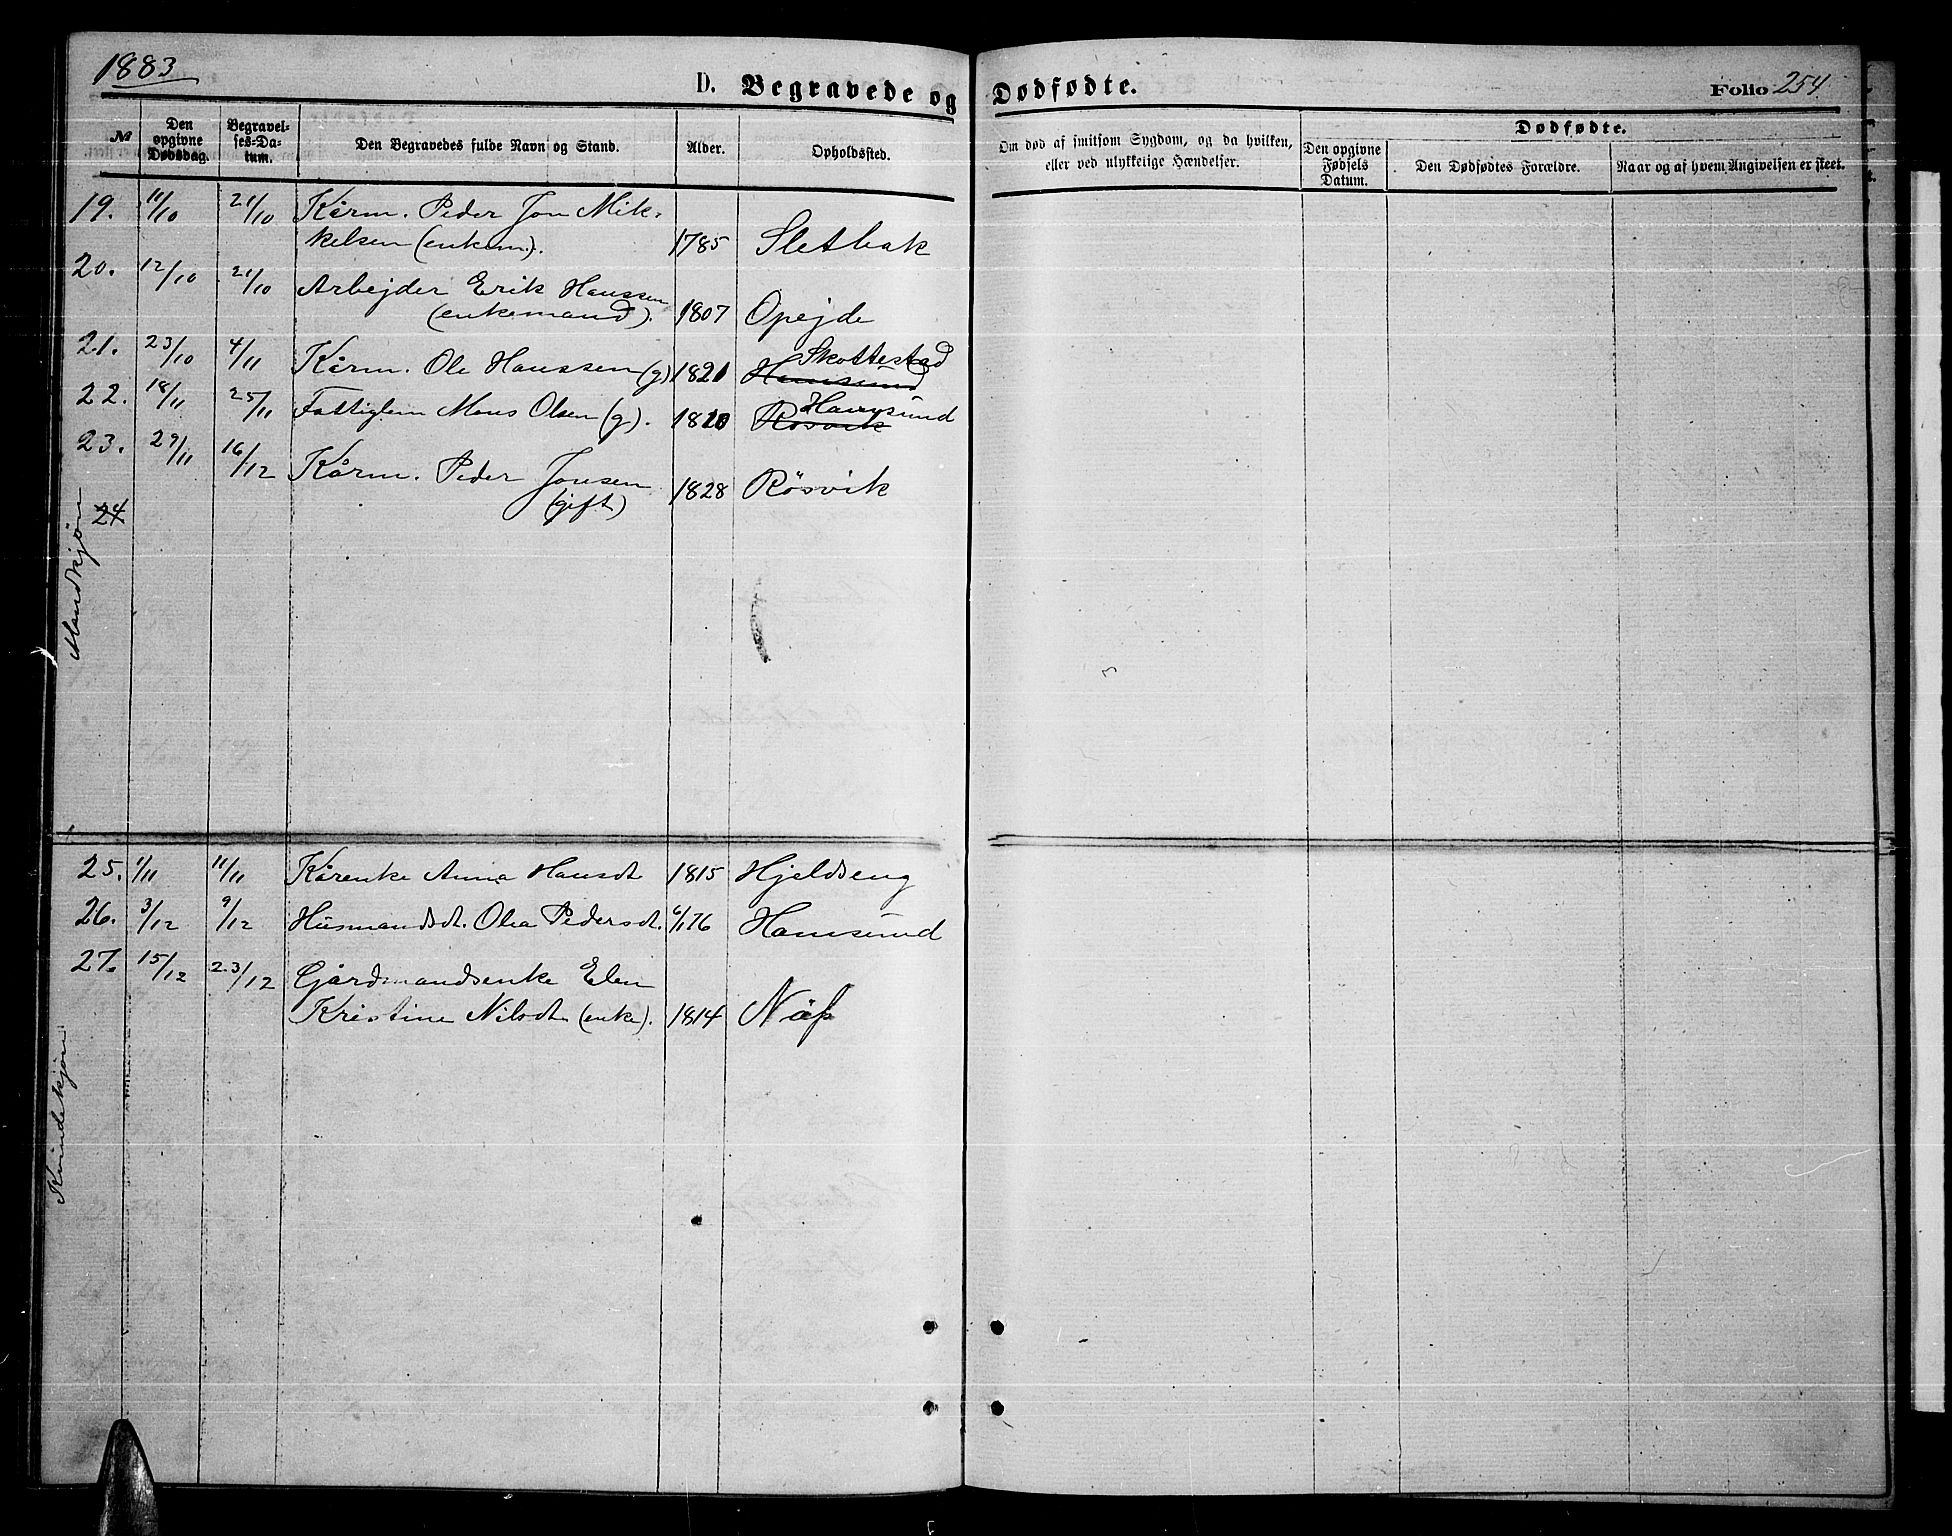 1883
D. Begravede og Dødfødte.
Folio 254
№ Den opgivne Dødsdag. Begravelses-Datum. Den Begravedes fulde Navn og Stand. Alder. Opholdssted. Om død af smitsom Sygdom, og da hvilken, eller ved ulykkelige Hændelser. Dødfødte.
Den opgivne Fødsels Datum. Den Dødfødtes Forældre. Naar og af hvem Angivelsen er skeet.
Mandkjøn
19. 11/10 21/10 Kårm. Peder Jon Mik-
kelsen (enkem.). 1785 Sletbak
20. 12/10 21/10 Arbejder Erik Hanssen
(enkemand). 1807 Opejde
21. 23/10 4/11 Kårm. Ole Hanssen (g) 1821 Hamsund Skottestad
22. 18/11 25/11 Fattiglem Mons Olsen (g). 1810 Rösvik Hamsund
23. 29/11 16/12 Kårm. Peder Jonsen
(gift) 1828 Rösvik
24
Kvindekjøn
25. 1/11 11/11 Kårenke Anna Hansdt 1815 Hjeldseng
26. 3/12 9/12 Husmandsdt. Olea Pedersdt. 6/1 76 Hamsund
27. 15/12 23/12 Gårdmandsenke Elen
Kristine Nilsdt (enke). 1814 Näs